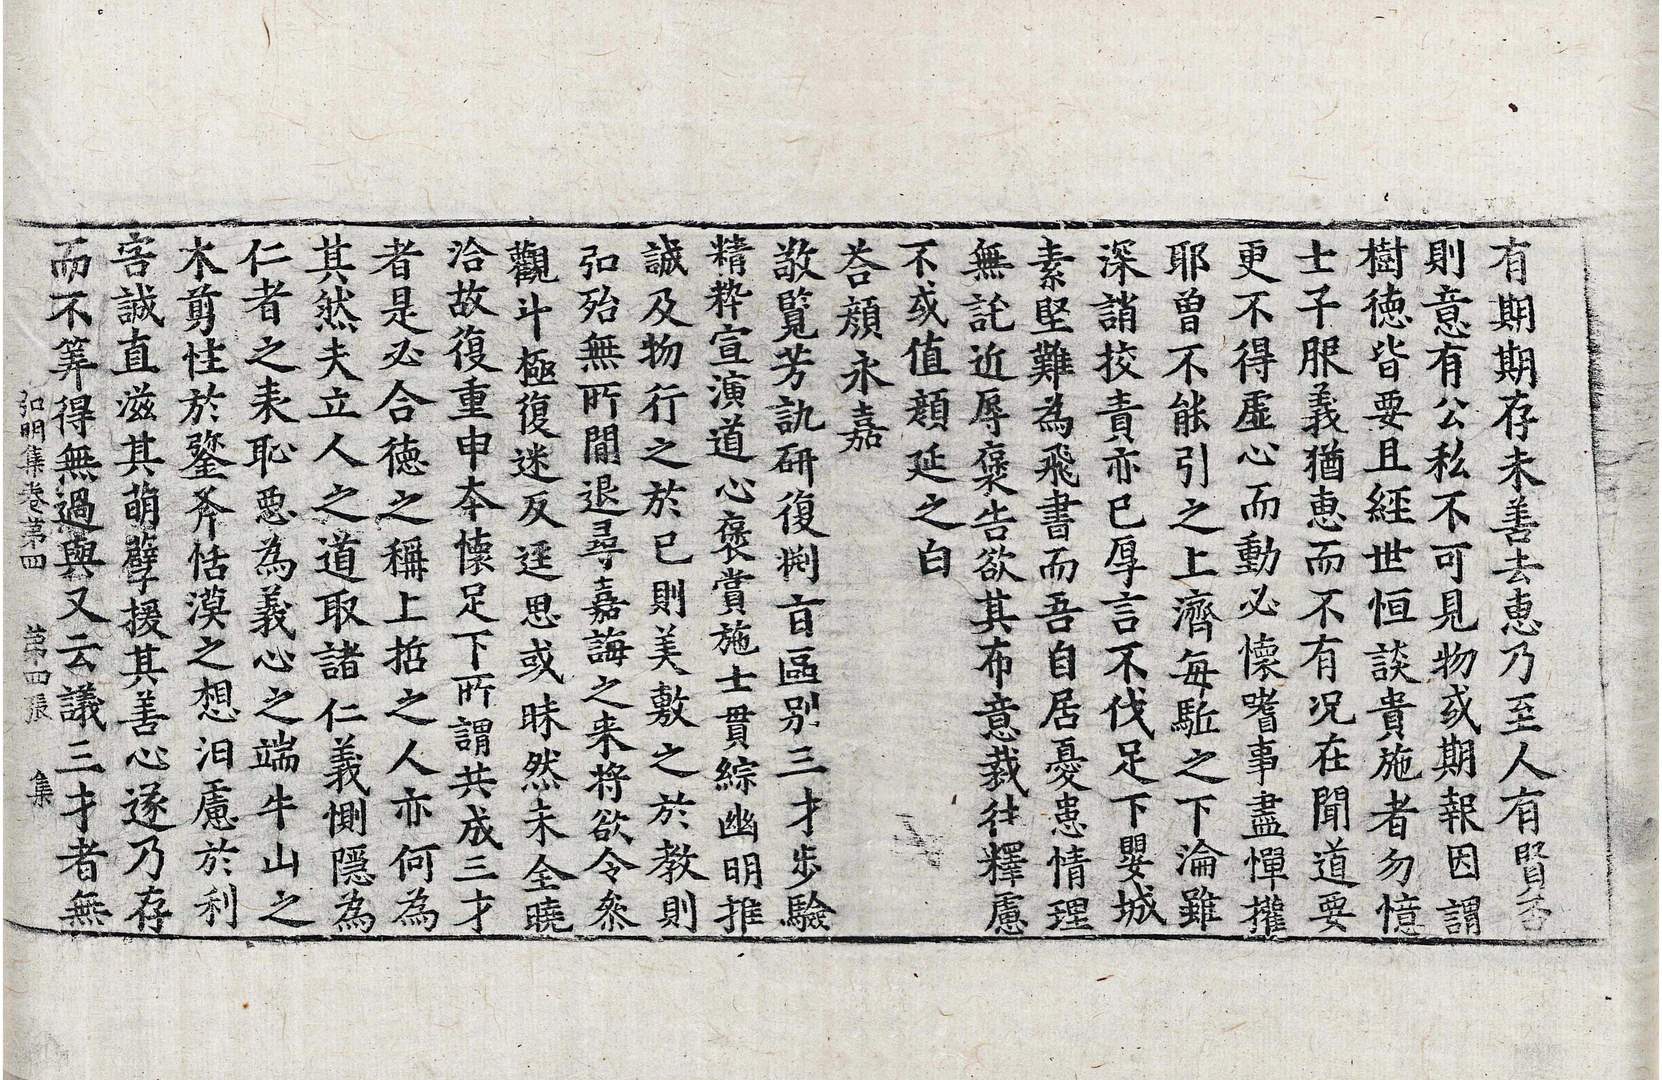 有期期存未善去惠乃至人有賢否
則意有公私不可見物或期報因謂
樹徳皆要且經世恒談貴施者勿憶
士子服義猶惠而不有况在聞道要
更不得虛心而動必懷嗜事盡憚權
耶曾不能引之上濟每駈之下淪雖
深誚挍責亦已厚言不伐足下嬰城
素堅難為飛書而吾自居憂患情理
無託近辱襃告欲其布意裁往釋慮
不或值顔延之白
荅顔永嘉
敬覽芳訊研復渕旨區别三才步驗
精粹宣演道心襃賞施士貫綜幽明推
誠及物行之於已則美敷之於教則
弘殆無所間退尋嘉誨之来将欲令叅
觀斗極復迷反逕思或昧然未全曉
洽故復重申夲懷足下所謂共成三才
者是必合徳之稱上哲之人亦何為
其然夫立人之道取諸仁義惻隱為
仁者之表恥惡為義心之端牛山之
木剪性於鐢斧恬漠之想汩慮於利
害誠直滋其萌孽援其善心遂乃存
而不筭得無過與又云議三才者無
弘明集卷第四 第四張 集